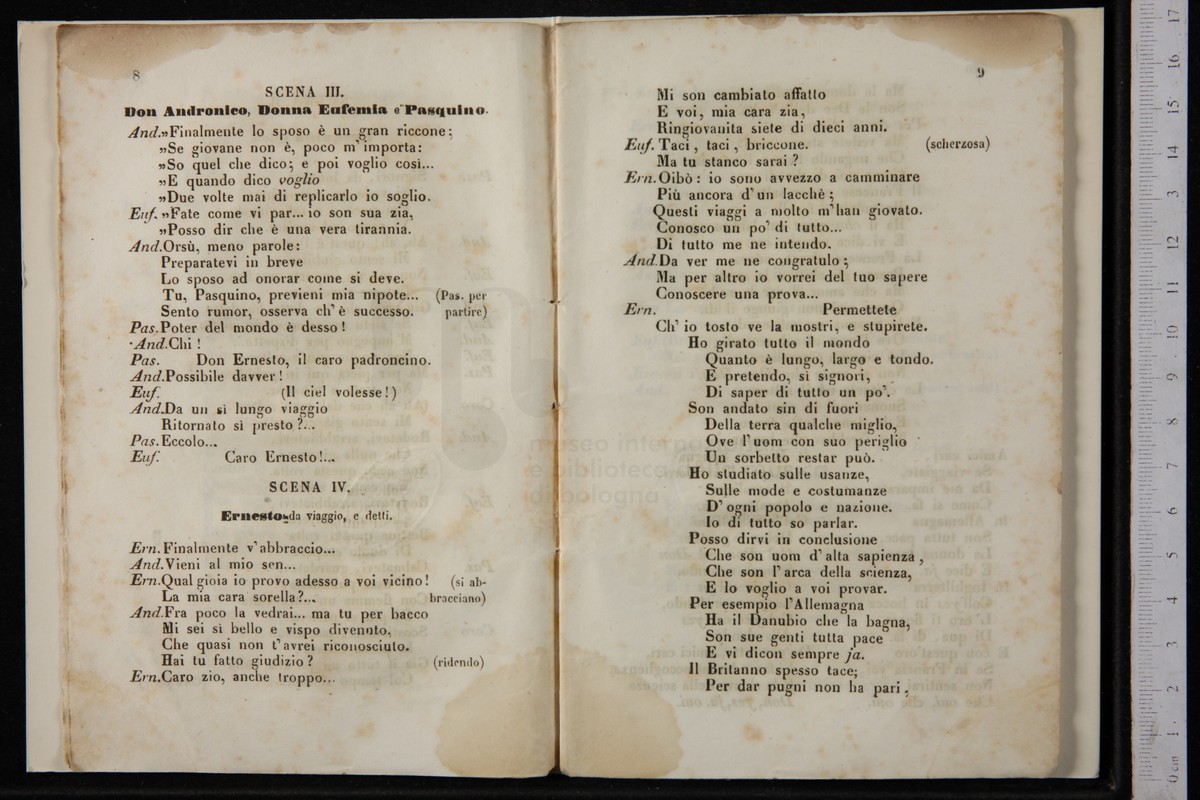 8
SCENA III.
Don Andronico, Donna Eufemia e Pasquino.
And. »Finalmente lo sposo è un gran riccone;
»Se giovane non è, poco m' importa:
»So quel che dico; e poi voglio così...
»E quando dico voglio
»Due volte mai di replicarlo io soglio.
Euf. »Fate come vi par... io son sua zia,
»Posso dir che è una vera tirannia.
And. Orsù, meno parole:
Preparatevi in breve
Lo sposo ad onorar come si deve.
Tu, Pasquino, previeni mia nipote... (Pas. per
Sento rumor, osserva ch' è successo. partire)
Pas. Poter del mondo è desso!
And. Chi!
Pas. Don Ernesto, il caro padroncino.
And. Possibile davver!
Euf. (Il ciel volesse!)
And. Da un sì lungo viaggio
Ritornato sì presto?...
Pas. Eccolo...
Euf. Caro Ernesto!...
SCENA IV.
Ernesto da viaggio, e detti.
Ern. Finalmente v' abbraccio...
And. Vieni al mio sen...
Ern. Qual gioia io provo adesso a voi vicino! (si ab-
La mia cara sorella?... bracciano)
And. Fra poco la vedrai... ma tu per bacco
Mi sei sì bello e vispo divenuto,
Che quasi non t' avrei riconosciuto.
Hai tu fatto giudizio? (ridendo)
Ern. Caro zio, anche troppo...
9
Mi son cambiato affatto
E voi, mia cara zia,
Ringiovanita siete di dieci anni.
Euf. Taci, taci, briccone. (scherzosa)
Ma tu stanco sarai?
Ern. Oibò: io sono avvezzo a camminare
Più ancora d' un lacchè;
Questi viaggi a molto m' han giovato.
Conosco un po' di tutto...
Di tutto me ne intendo.
And. Da ver me ne congratulo;
Ma per altro io vorrei del tuo sapere
Conoscere una prova...
Ern. Permettete
Ch' io tosto ve la mostri, e stupirete.
Ho girato tutto il mondo
Quanto è lungo, largo e tondo.
E pretendo, sì signori,
Di saper di tutto un po'.
Son andato sin di fuori
Della terra qualche miglio,
Ove l' uom con suo periglio
Un sorbetto restar può.
Ho studiato sulle usanze,
Sulle mode e costumanze
D' ogni popolo e nazione.
Io di tutto so parlar.
Posso dirvi in conclusione
Che son uom d' alta sapienza,
Che son l' arca della scienza,
E lo voglio a voi provar.
Per esempio l' Allemagna
Ha il Danubio che la bagna,
Son sue genti tutta pace
E vi dicon sempre ja.
Il Britanno spesso tace;
Per dar pugni non ha pari,